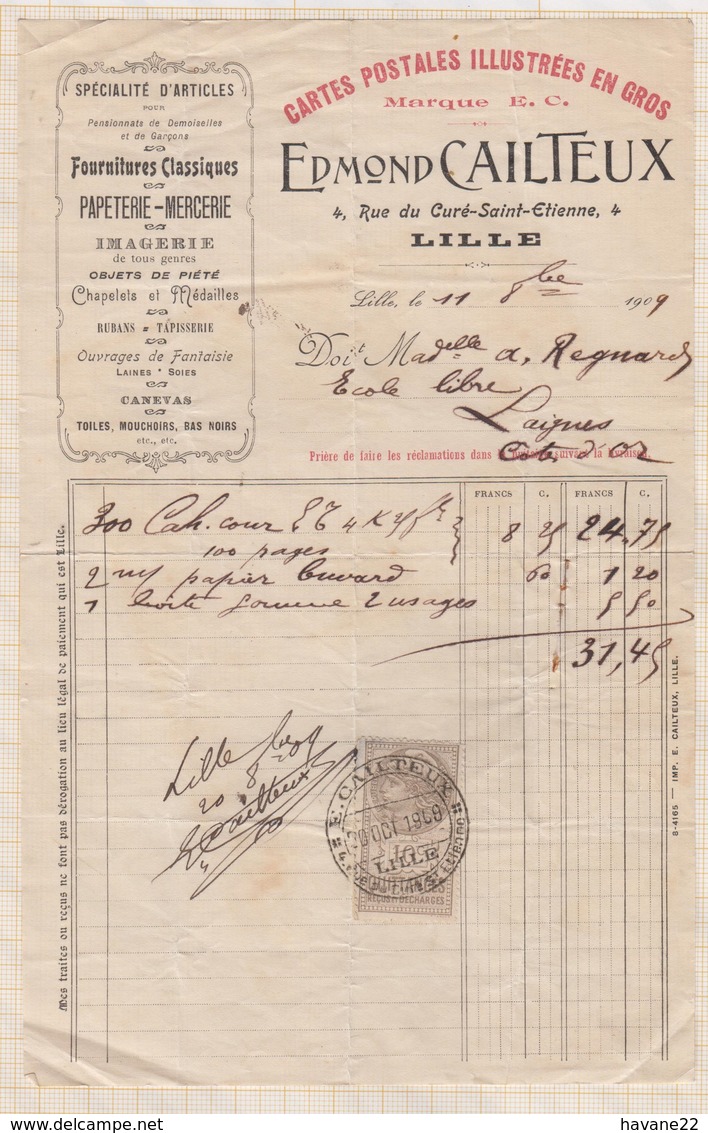 SPÉCIALITÉ D'ARTICLES
POUR
Pensionnats de Demoiselles
et de Garçons
Fournitures Classiques
PAPETERIE-MERCERIE
IMAGERIE
de tous genres
OBJETS DE PIÉTÉ
Chapelets et Médailles
RUBANS = TAPISSERIE
Ouvrages de Fantaisie
LAINES * SOIES
CANEVAS
TOILES, MOUCHOIRS, BAS NOIRS
etc., etc.
CARTES POSTALES ILLUSTRÉES EN GROS
Marque E. C.
EDMOND CAILTEUX
4, Rue du Curé-Saint-Etienne, 4
LILLE
Lille, le 11 8bre 1909
Doit Madelle A. Regnard
Ecole libre
Laignes
Côte d'Or
Prière de faire les réclamations dans la suivant la livraison.
FRANCS C. FRANCS C.
300 Cah. cour 4 K 8 25 24.75
100 pages
2 papier buvard 60 1 20
1 boîte gomme 2 usages 5 50
31,45
Lille
20 8bre 09
E Cailteux
E. CAILTEUX
20 OCT 1909
LILLE
QUITTANCES
REÇUS ET DÉCHARGES
Mes traites ou reçus ne font pas dérogation au lieu légal de paiement qui est Lille.
8-4165 — IMP. E. CAILTEUX, LILLE.
havane22